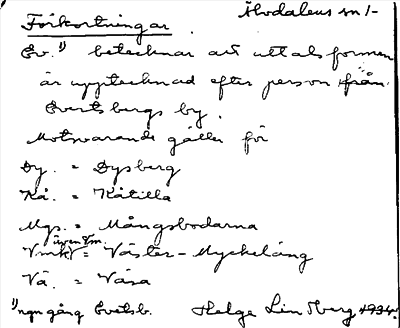 Älvdalens sn 1-
Förkortningar.
Ev.¹⁾ betecknar att uttalsformen
är upptecknad efter person från
Evertsbergs by.
Motsvarande gäller för
Dy. = Dysberg
Kå. = Kåtilla
Mgs. = Månsgsbodarna
även Vm.
Vmk = Väster-Myckeläng
Vä. = Väsa
¹⁾ngn gång Evetsb. Helge Lindberg 1934.